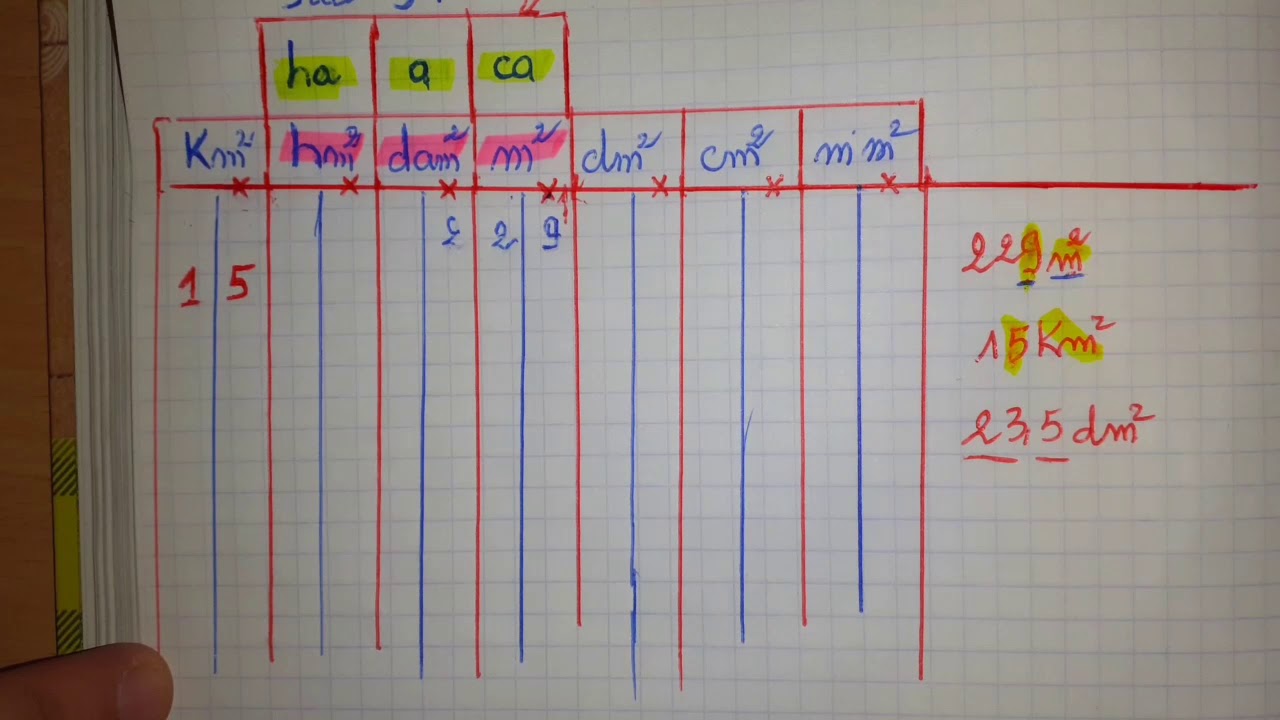 ha a ca
Km² hm² dam² m² dm² cm² mm²
2 2 9
1 5
229 m²
15 Km²
23,5 dm²